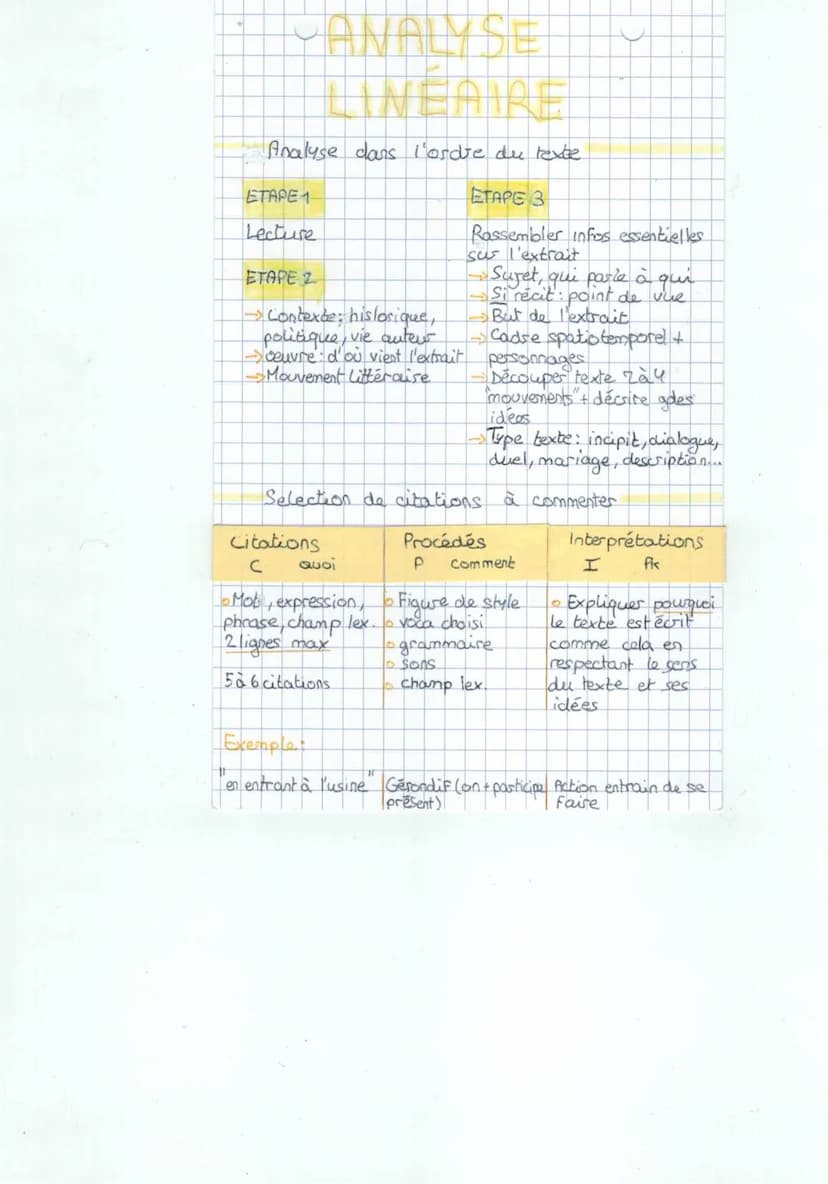 ANALYSE
LINÉAIRE
Analyse dans l'ordre du texte
ETAPE 1
Lecture
ETAPE 2
→ Contexte: historique,
politique, vie auteur
→ oeuvre: d'où vient l'extrait
→ Mouvement littéraire
ETAPE 3
Rassembler infos essentielles
sur l'extrait
→ Sujet, qui parle à qui
→ Si récit: point de vue
→ But de l'extrait
→ Cadre spatiotemporel +
personnages
→ Découper texte 2 à 4
"mouvements" + décrire gdes
idées
→ Type texte: incipit, dialogue,
duel, mariage, description...
Selection de citations à commenter
Citations
C quoi
Procédés
P comment
Interprétations
I Pk
Mot, expression,
phrase, champ lex.
2 lignes max
5 à 6 citations
Figure de style
voca choisi
grammaire
sons
champ lex.
Expliquer pourquoi
le texte est écrit
comme cela en
respectant le sens
du texte et ses
idées
Exemple:
"en entrant à l'usine"
Gérondif (en + participe
présent)
Action entrain de se
faire